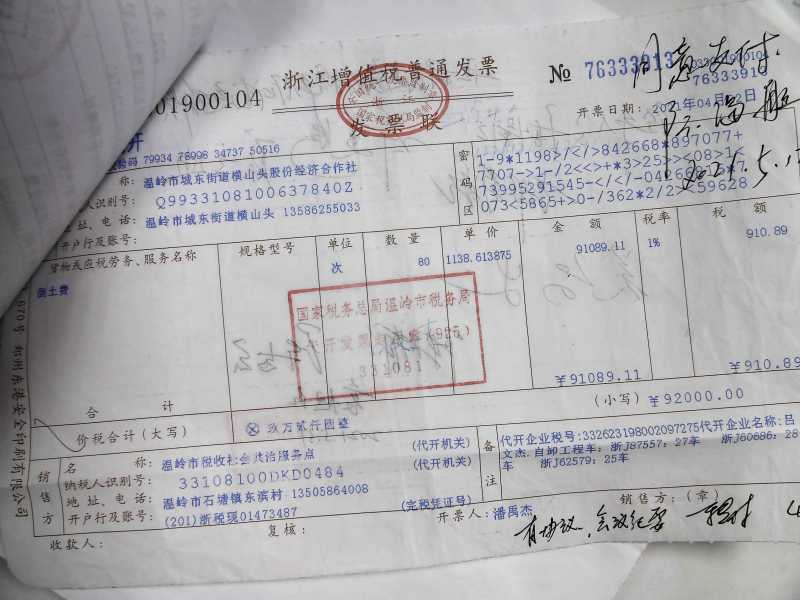 浙江增值税普通发票
No 76333913
01900104
76333913
发票联
开票日期：2021年04月22日
79934 78998 34737 50516
称：温岭市城东街道横山头股份经济合作社
人识别号：Q9933108100637840Z
地址、电话：温岭市城东街道横山头 13586255033
开户行及账号：
密码区
1-9*1198>/</>842668*897077+
7707->1-/2<<>+*3>25><08>1<
73995291545-</</-04
073<5865+>0-/362*2/2><59628
同意支付
2021.5.1
货物或应税劳务、服务名称 规格型号 单位 数量 单价 金额 税率 税额
倒土费 次 80 1138.613875 91089.11 1% 910.89
国家税务总局温岭市税务局
331081
合计 ￥91089.11 ￥910.89
价税合计（大写） ⊗ 玖万贰仟圆整 （小写）￥92000.00
销售方
名称：温岭市税收社会共治服务点 （代开机关）
纳税人识别号：33108100DKD0484 （代开机关）
地址、电话：温岭市石塘镇东滨村 13505864008
开户行及账号：(201)浙税现01473487 （完税凭证号）
备注
代开企业税号：332623198002097275代开企业名称：吕
文杰，自卸工程车：浙J87557：27车 浙J60686：28
车 浙J62579：25车
收款人： 复核： 开票人：潘禹杰 销售方：（章）
有协议，会议纪要
670号 郑州东港安全印刷有限公司